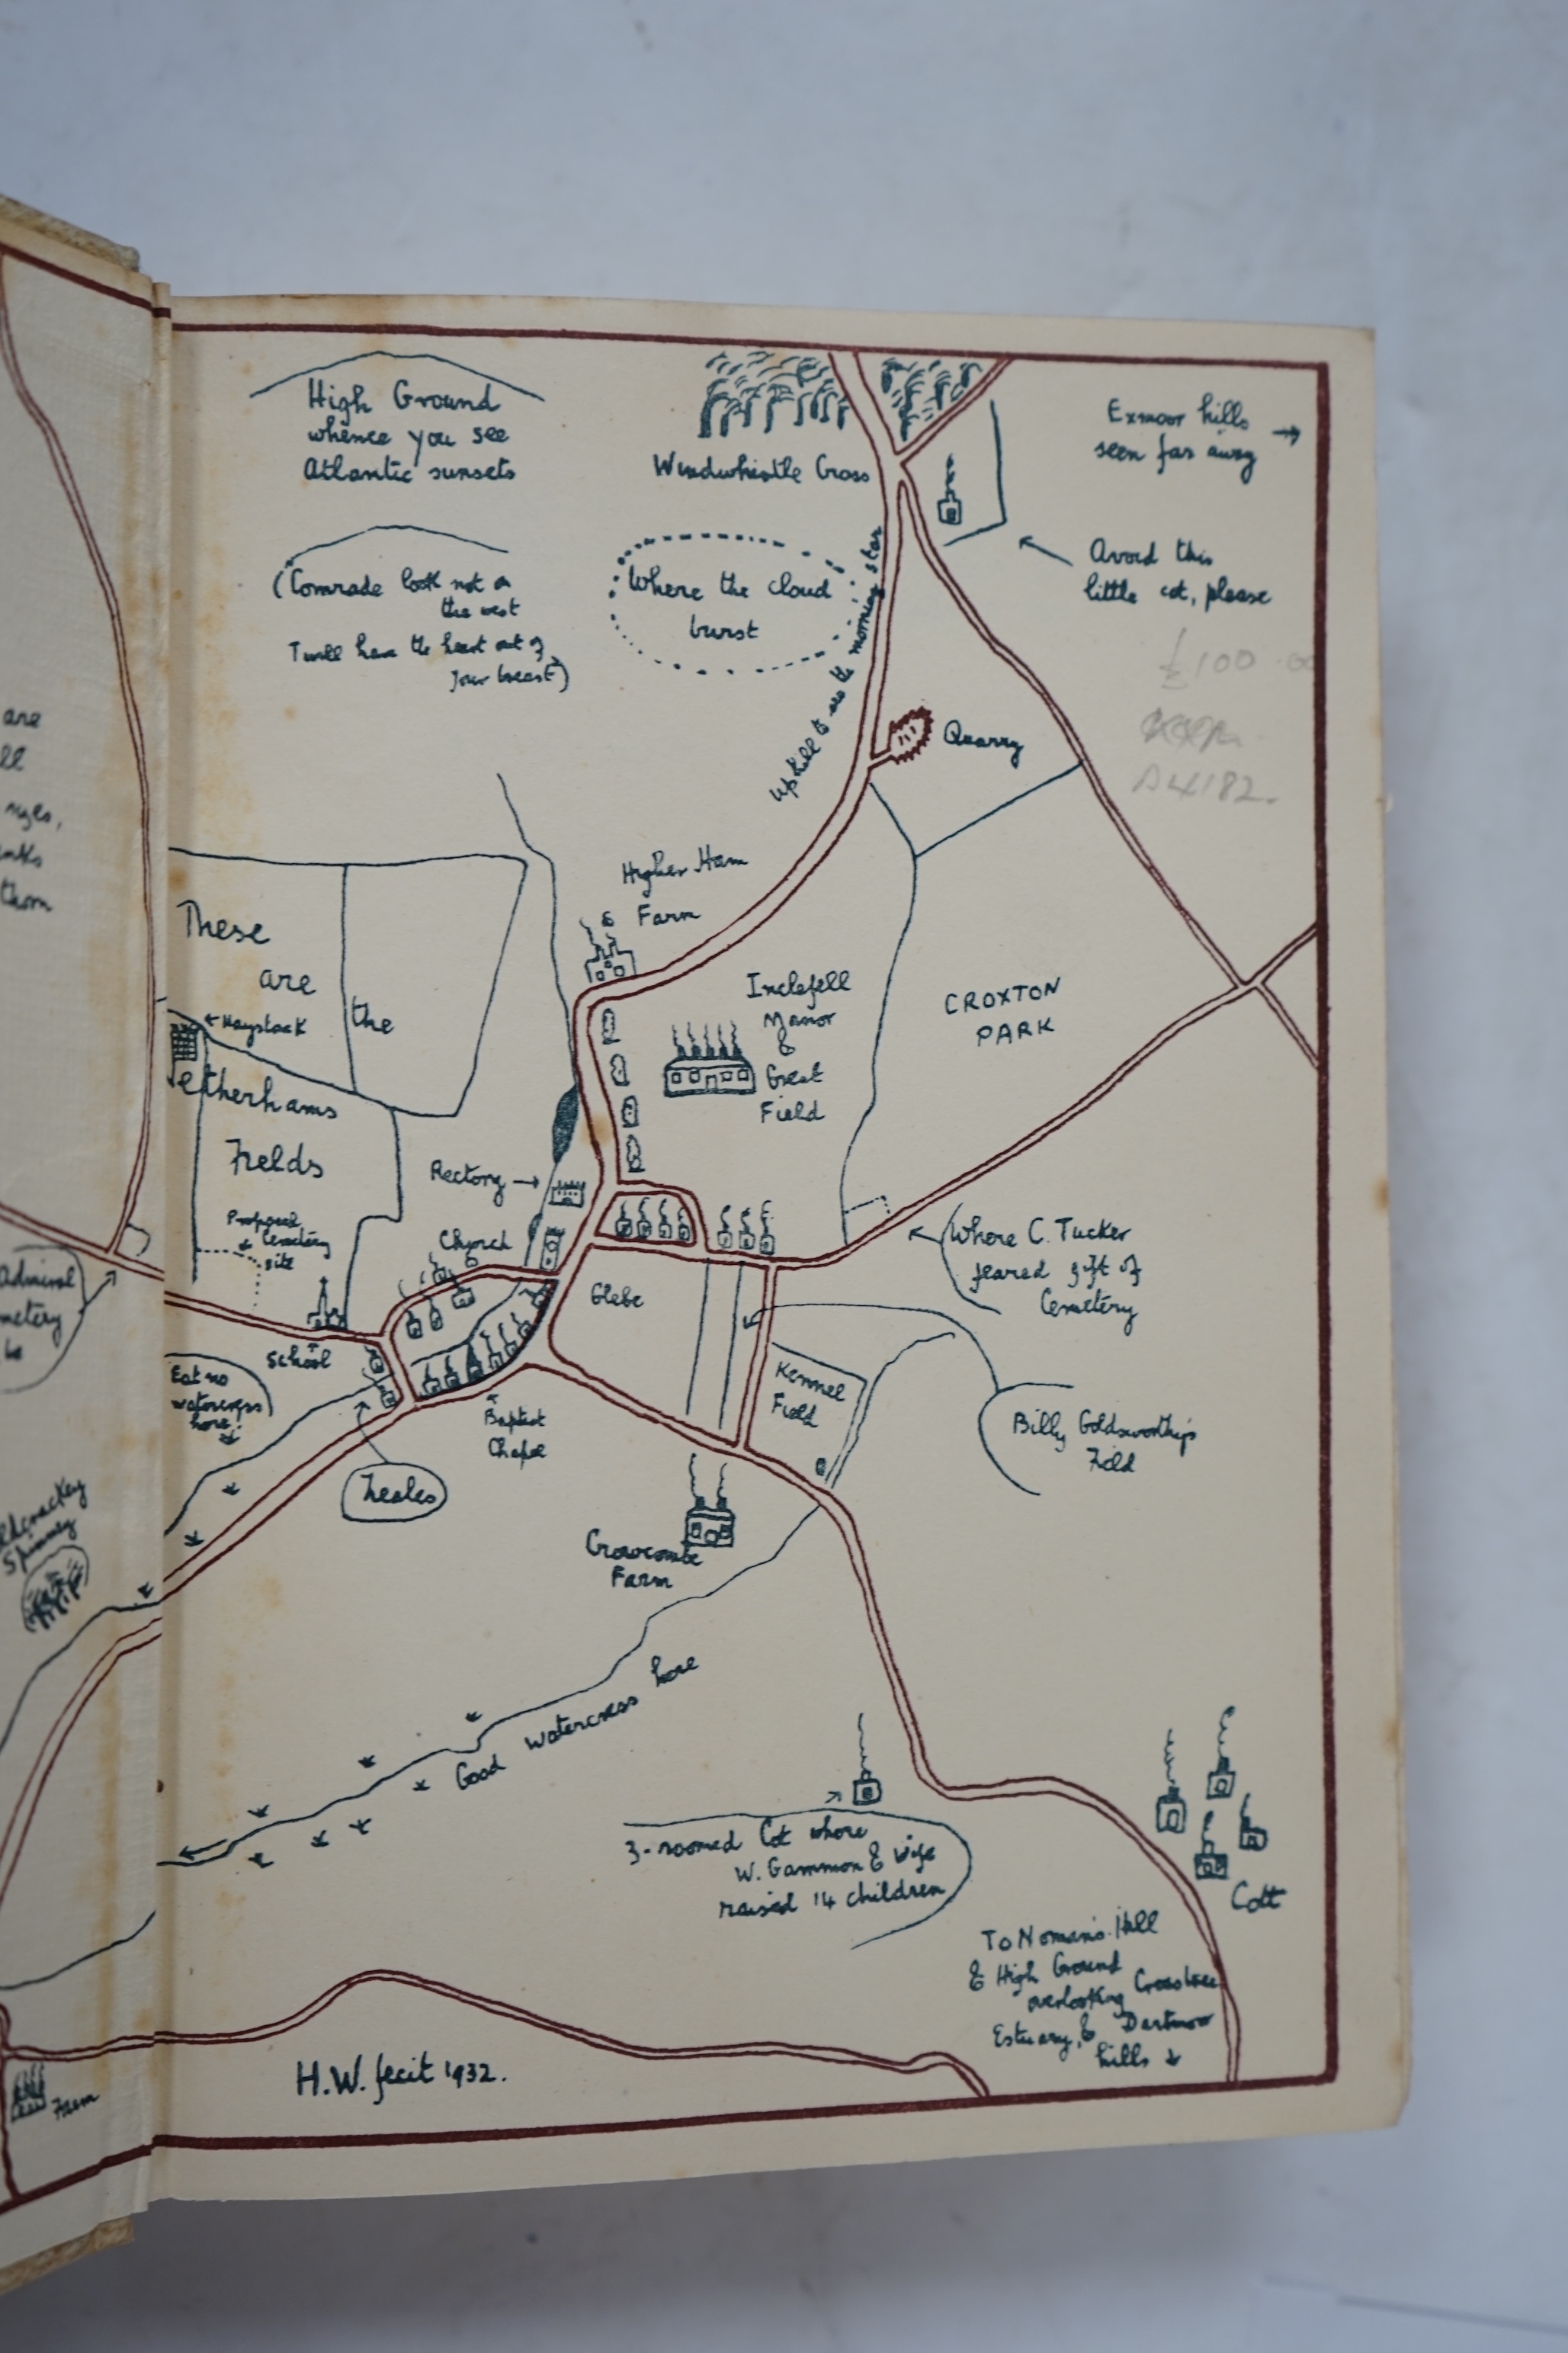 High Ground
whence you see
Atlantic sunsets
Windwhistle Cross
Exmoor hills →
seen far away
Avoid this
little cot, please
(Comrade look not on
the west
Twill have the heart out of
your breast)
Where the cloud
burst
uphill to see the morning star
£100.00
A4182.
Quarry
Higher Ham
Farm
are
ll
thorn
These
are
the
Haystack
Netherhams
Fields
Inclefell
Manor
&
Great
Field
CROXTON
PARK
Rectory →
Proposed
Cemetery
site
Church
Glebe
Where C. Tucker
feared gift of
Cemetery
Admiral
School
Eat no
watercress
here!
Baptist
Chapel
Zeales
Kennel
Field
Billy Goldsworthy's
Field
Spinney
Crowcombe
Farm
Good watercress here
3-roomed Cot where
W. Gammon & Wife
raised 14 children
Cott
To Noman's Hill
& High Ground
overlooking Crosstree
Estuary, & Dartmoor
hills
H.W. fecit 1932.
Farm